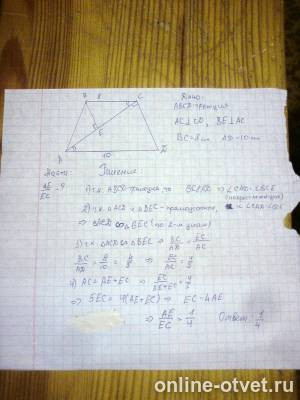 B 8 C
E
A 10 D
Дано:
ABCD-трапеция
AC⊥CD, BE⊥AC
BC=8см AD=10см
Найти: Решение
AE/EC - ?
1) т.к. ABCD-трапеция, то BC||AD ⇒ ∠CAD=∠BCE
2) т.к. △ACD и △BEC - прямоугольные, и ∠CAD=∠BCE
⇒ △ACD ∾ △BEC (по 2-м углам)
3) т.к. △ACD ∾ △BEC ⇒ BC/AD = EC/AC
BC/AD = 8/10 = 4/5 ⇒ EC/AC = 4/5
4) AC=AE+EC ⇒ EC/(AE+EC) = 4/5
⇒ 5EC = 4(AE+EC) ⇒ EC=4AE
⇒ AE/EC = 1/4 Ответ: 1/4
online-otvet.ru